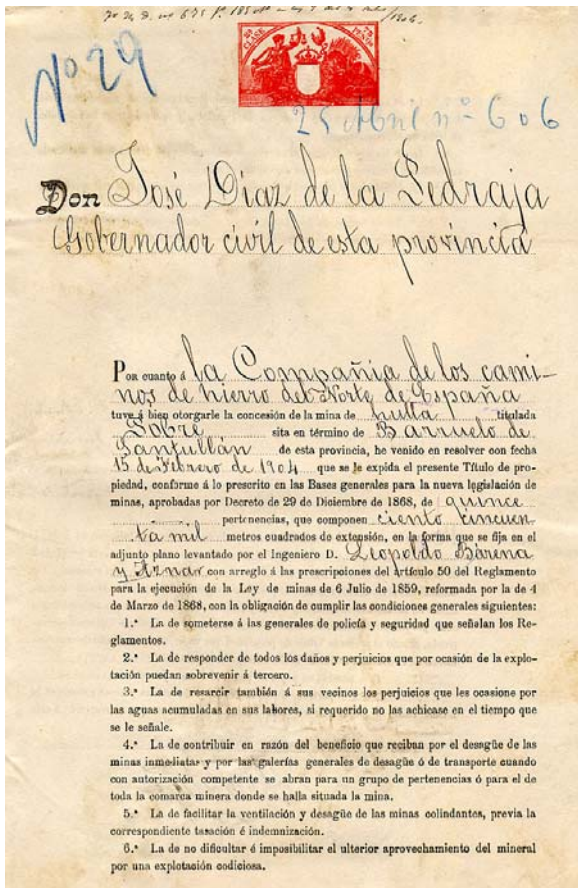 Nº 29
25 Abril nº 606
Don José Diaz de la Pedraja
Gobernador civil de esta provincia
Por cuanto á la Compañia de los cami-
nos de hierro del Norte de España
tuve á bien otorgarle la concesión de la mina de hulla titulada
Sobre sita en término de Barruelo de
Santullán de esta provincia, he venido en resolver con fecha
15 de Febrero de 1904 que se le expida el presente Título de pro-
piedad, conforme á lo prescrito en las Bases generales para la nueva legislación de
minas, aprobadas por Decreto de 29 de Diciembre de 1868, de quince
pertenencias, que componen ciento cincuen
ta mil metros cuadrados de extensión, en la forma que se fija en el
adjunto plano levantado por el Ingeniero D. Leopoldo Bárcena
y Aznar con arreglo á las prescripciones del artículo 50 del Reglamento
para la ejecución de la Ley de minas de 6 Julio de 1859, reformada por la de 4
de Marzo de 1868, con la obligación de cumplir las condiciones generales siguientes:
1.ª La de someterse á las generales de policía y seguridad que señalan los Re-
glamentos.
2.ª La de responder de todos los daños y perjuicios que por ocasión de la explo-
tación puedan sobrevenir á tercero.
3.ª La de resarcir también á sus vecinos los perjuicios que les ocasione por
las aguas acumuladas en sus labores, si requerido no las achicase en el tiempo que
se le señale.
4.ª La de contribuir en razón del beneficio que reciban por el desagüe de las
minas inmediatas y por las galerías generales de desagüe ó de transporte cuando
con autorización competente se abran para un grupo de pertenencias ó para el de
toda la comarca minera donde se halla situada la mina.
5.ª La de facilitar la ventilación y desagüe de las minas colindantes, previa la
correspondiente tasación é indemnización.
6.ª La de no dificultar é imposibilitar el ulterior aprovechamiento del mineral
por una explotación codiciosa.